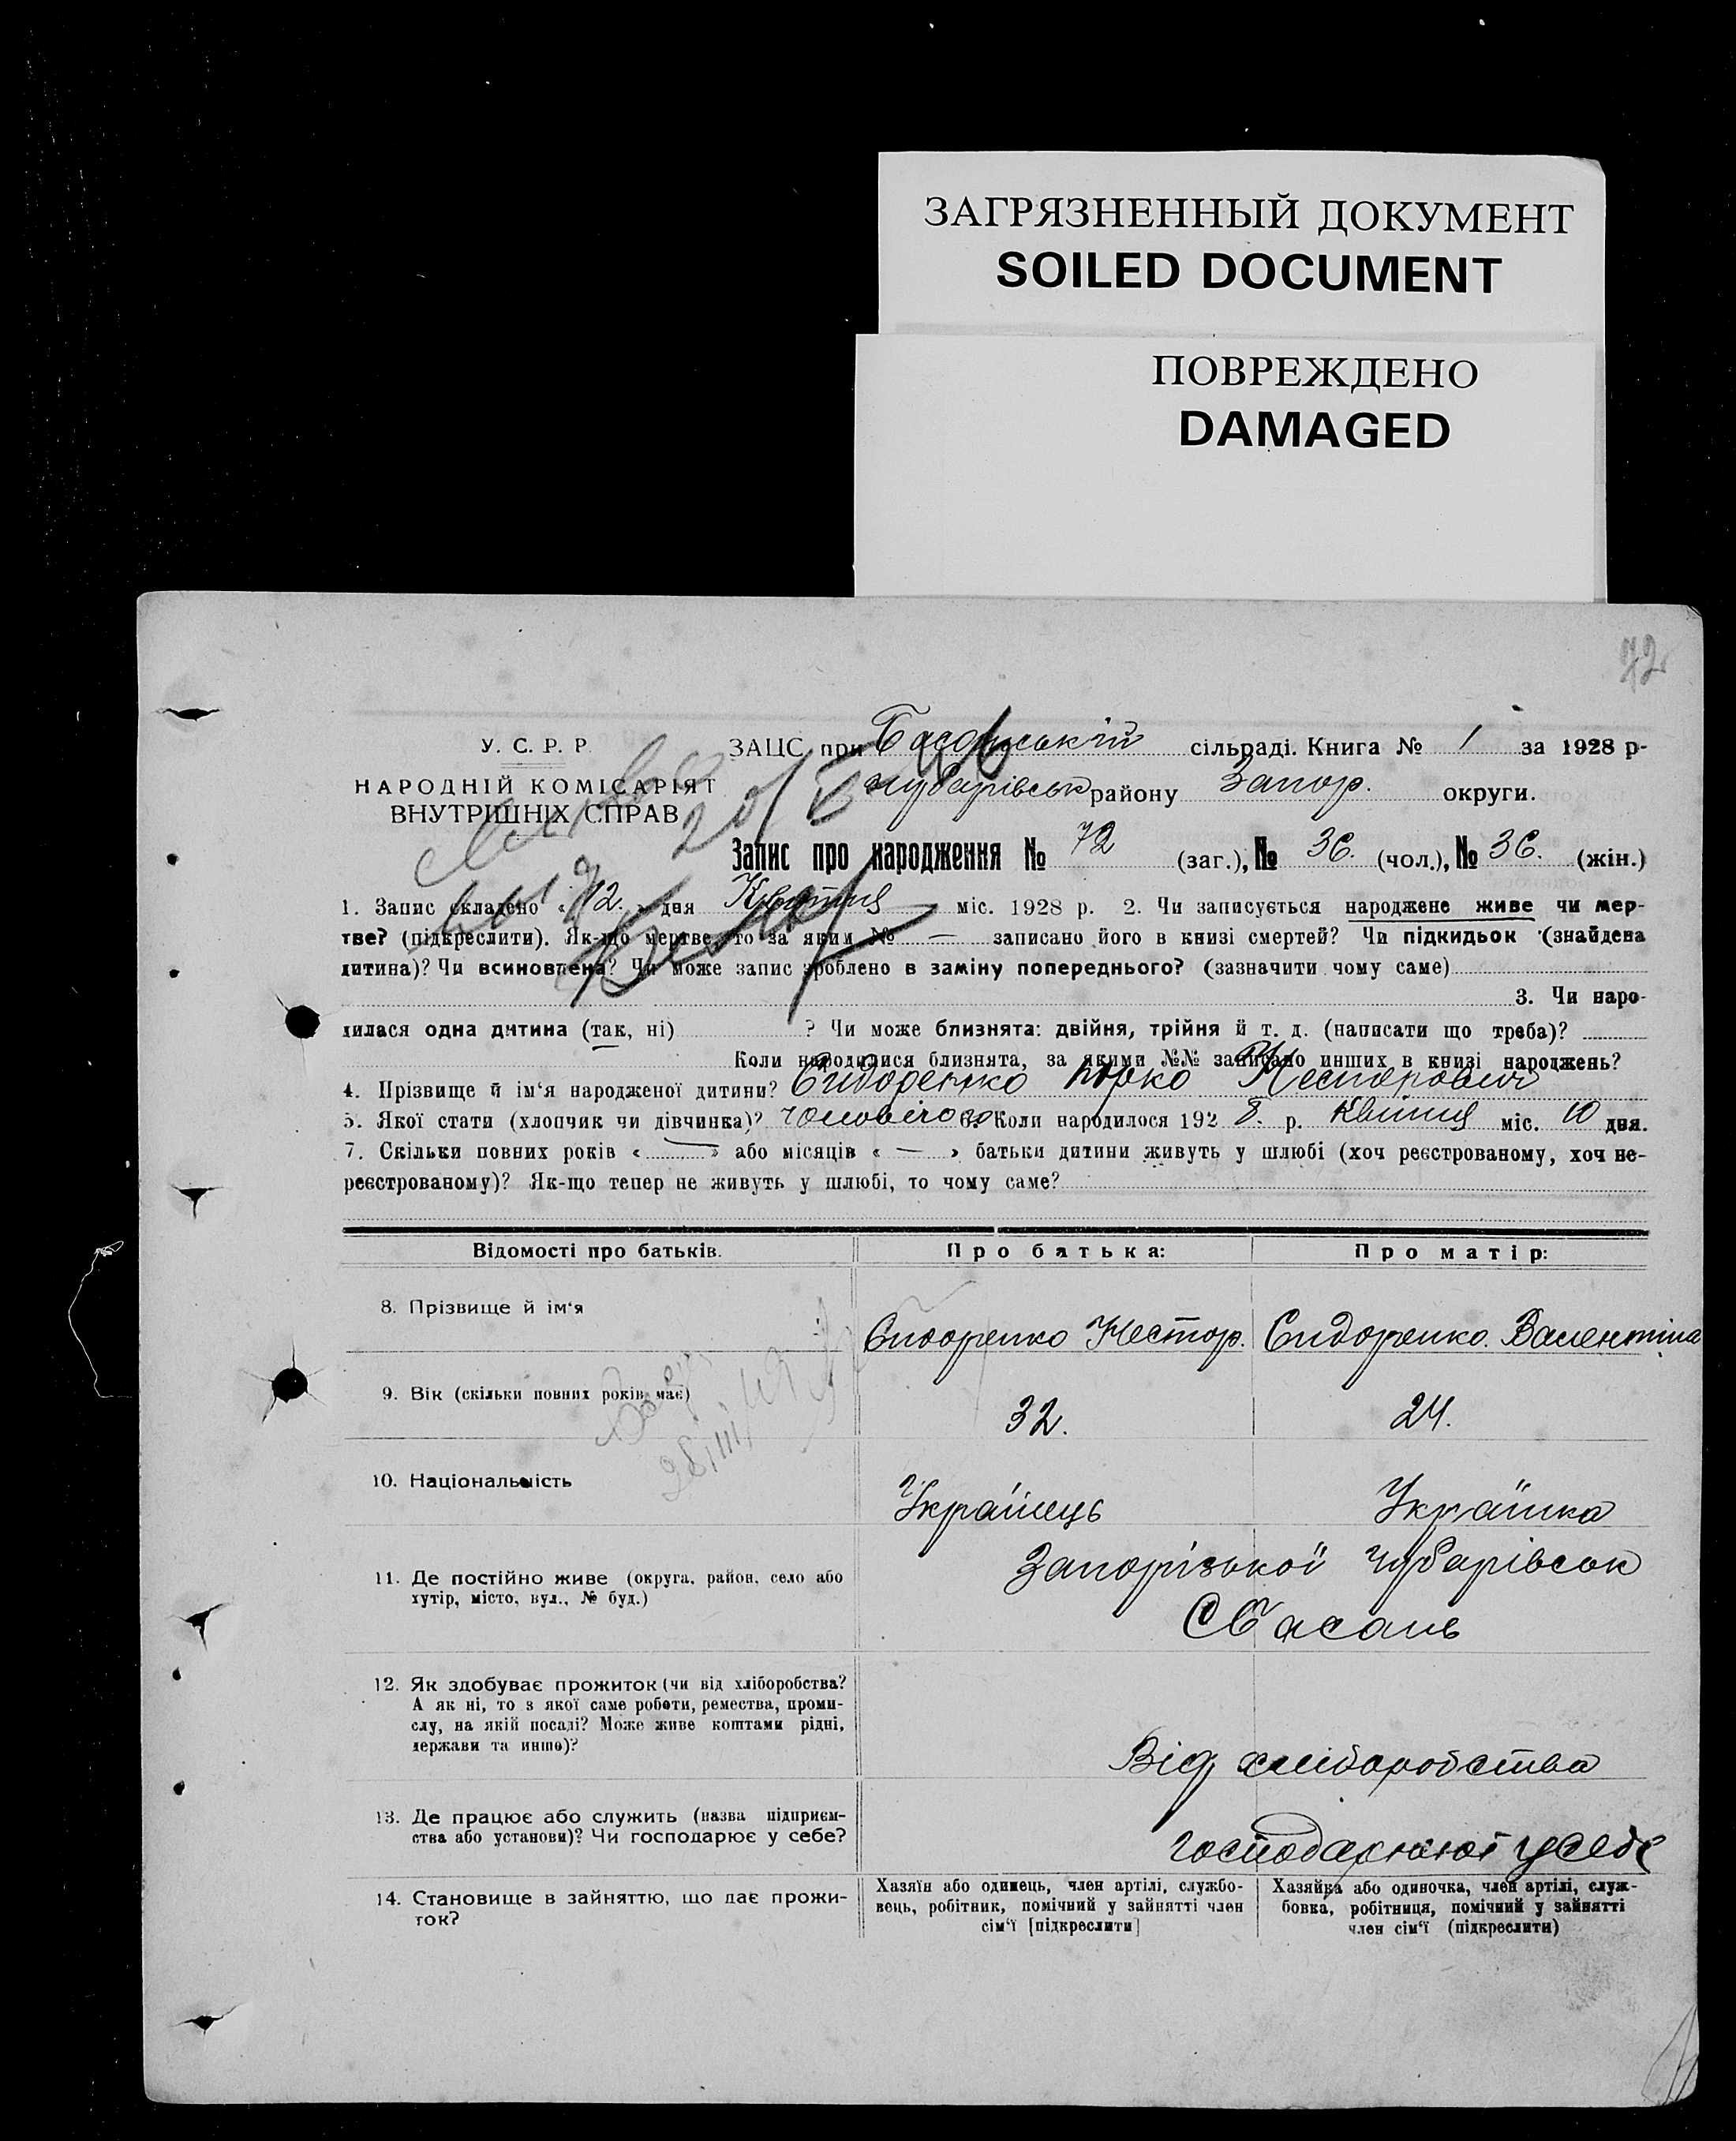 ЗАГРЯЗНЕННЫЙ ДОКУМЕНТ
SOILED DOCUMENT
ПОВРЕЖДЕНО
DAMAGED
72
У. С. Р. Р.
НАРОДНІЙ КОМІСАРІЯТ
ВНУТРІШНІХ СПРАВ
ЗАЦС при Басанській сільраді. Книга № 1 за 1928 р-
Чубарівськ району Запор. округи.
Запис про народження № 72 (заг.), № 36. (чол.), № 36. (жін.)
1. Запис складено « 12. » дня Квітня міс. 1928 р. 2. Чи записується народжене живе чи мер-
тве? (підкреслити). Як-що мертве, то за яким № — записано його в книзі смертей? Чи підкидьок (знайдена
дитина)? Чи всиновлена? Чи може запис зроблено в заміну попереднього? (зазначити чому саме)
3. Чи наро-
дилася одна дитина (так, ні) ? Чи може близнята: двійня, трійня й т. д. (написати що треба)?
Коли народилися близнята, за якими №№ записано инших в книзі народжень?
4. Прізвище й ім'я народженої дитини? Сидоренко Нестерович
5. Якої стати (хлопчик чи дівчинка)? Чоловічо 6. Коли народилося 192 8. р. Квітня міс. 10 дня.
7. Скільки повних років « — » або місяців « — » батьки дитини живуть у шлюбі (хоч реєстрованому, хоч не-
реєстрованому)? Як-що тепер не живуть у шлюбі, то чому саме?
Відомості про батьків. Про батька: Про матір:
8. Прізвище й ім'я
Сидоренко Нестор. Сидоренко. Валентіна
9. Вік (скільки повних років має)
32. 24.
10. Національність
Українець Українка
11. Де постійно живе (округа, район, село або
хутір, місто, вул., № буд.)
Запорізької Чубарівськ
С Басань
12. Як здобуває прожиток (чи від хліборобства?
А як ні, то з якої саме роботи, ремества, проми-
слу, на якій посаді? Може живе коштами рідні,
держави та инше)?
Від хліборобства
13. Де працює або служить (назва підприєм-
ства або установи)? Чи господарює у себе?
господарюют у себе
14. Становище в зайняттю, що дає прожи-
ток?
Хазяїн або одинець, член артілі, службо-
вець, робітник, помічний у зайнятті член
сім'ї [підкреслити]
Хазяйка або одиночка, член артілі, служ-
бовка, робітниця, помічний у зайнятті
член сім'ї (підкреслити)